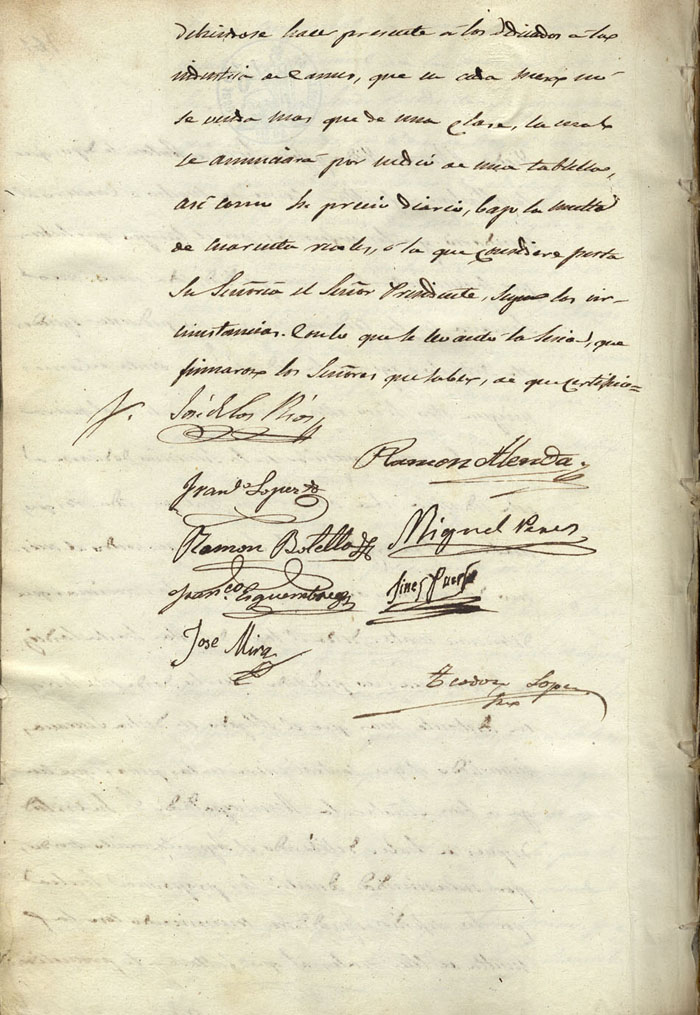 debiendose hacer presente á los dedicados á la
industria de carnes, que en cada mesa no
se venda mas que de una clase, la cual
se anunciará por medio de una tablilla,
así como su precio diario, bajo la multa
de cuarenta reales, ó la que considere justa
Su Señoria el Señor Presidente, segun las cir-
cunstancias. Con lo que se levantó la sesion, que
firmaron los Señores que saben, de que certifico=
José de los Rios
Ramon Alenda
Fran.co Lopez
Ramon Botella
Miguel Perez
Fran.co Esquembre
Gines
Jose Mira
Teodoro Lopez